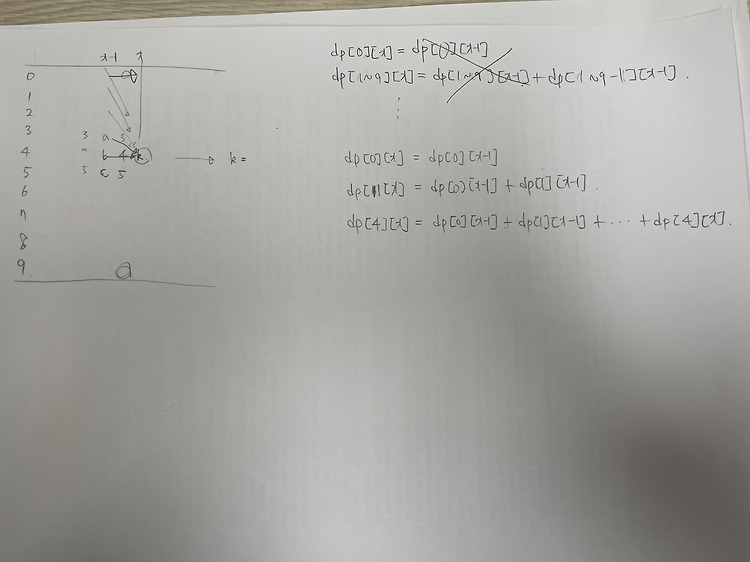 x-1 x
0
1
2
3
3 a 3
4 b 4 k → k =
5 5 c 5
6
7
8
9 a
dp[0][x] = dp[0][x-1]
dp[1~9][x] = dp[1~9][x-1] + dp[1~9-1][x-1].
⋮
dp[0][x] = dp[0][x-1]
dp[1][x] = dp[0][x-1] + dp[1][x-1].
dp[4][x] = dp[0][x-1] + dp[1][x-1] + ··· + dp[4][x].